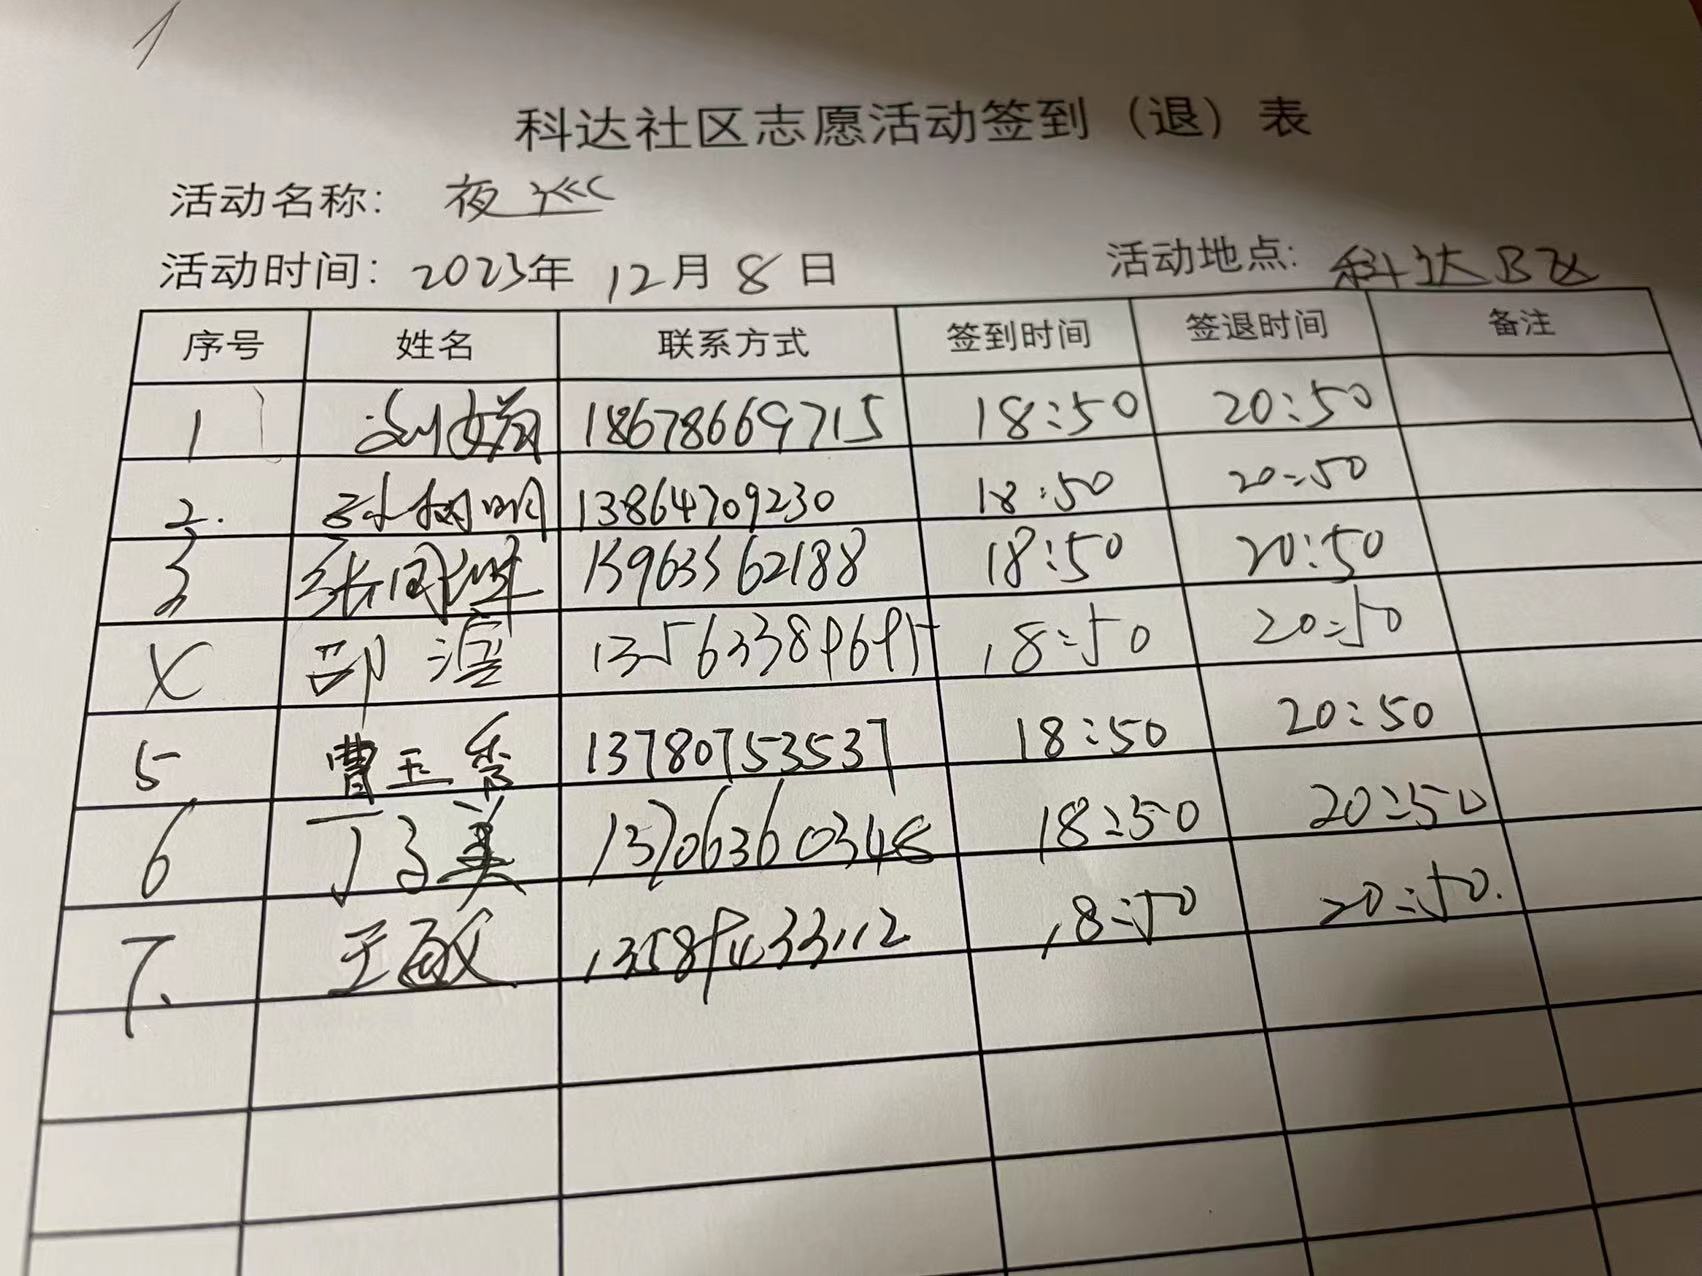 科达社区志愿活动签到（退）表
活动名称： 夜巡
活动时间：2023年 12月 8日 活动地点：科达B区
序号 姓名 联系方式 签到时间 签退时间 备注
1 18678669715 18:50 20:50
2. 孙树明 13864709230 18:50 20:50
3 13963562188 18:50 20:50
18:50 20:50
5 曹玉秀 13780753537 18:50 20:50
6 丁子美 13706360348 18:50 20:50
7. 王敏 18:50 20:50.